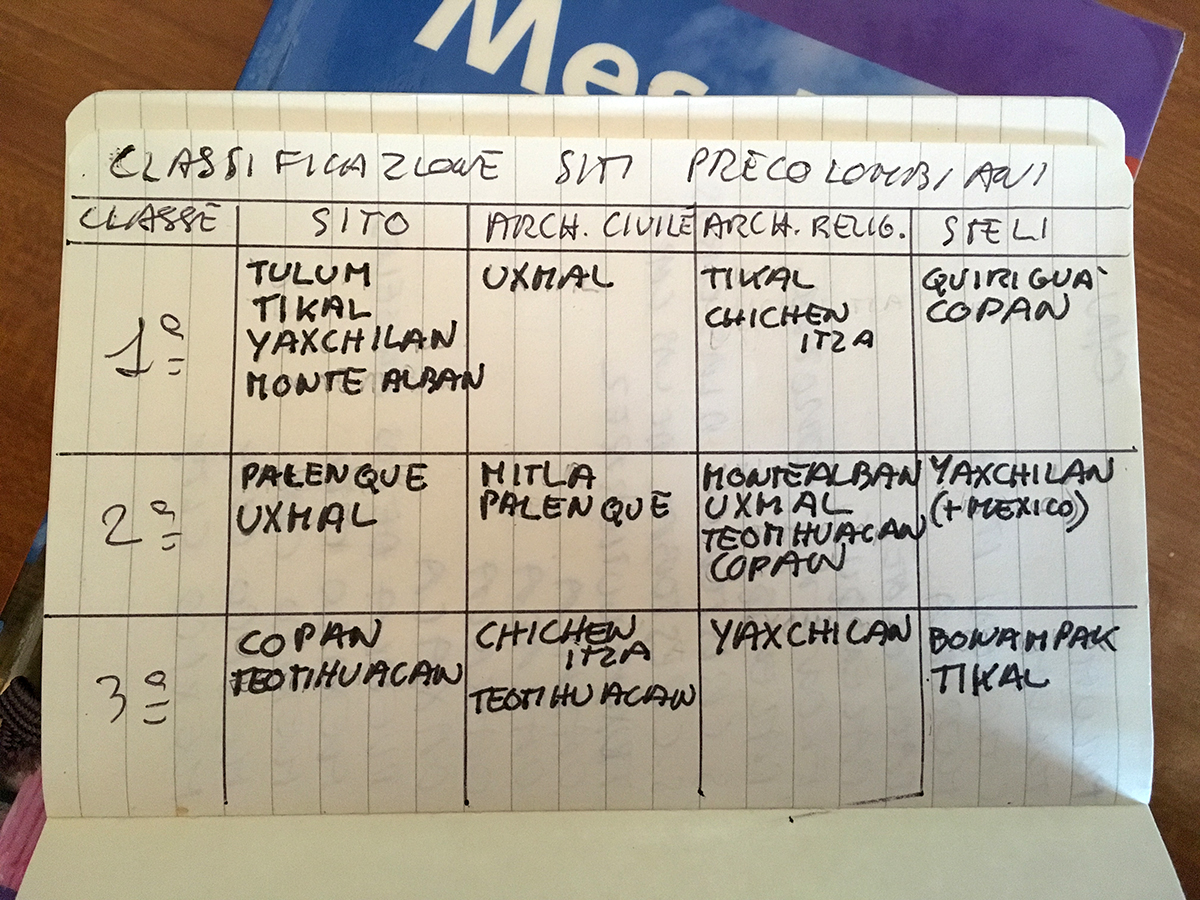 Mes
CLASSIFICAZIONE SITI PRECOLOMBIANI
CLASSE SITO ARCH. CIVILE ARCH. RELIG. STELI
1ª
TULUM
TIKAL
YAXCHILAN
MONTE ALBAN
UXMAL
TIKAL
CHICHEN
ITZA
QUIRIGUA'
COPAN
2ª
PALENQUE
UXMAL
MITLA
PALENQUE
MONTEALBAN
UXMAL
TEOTIHUACAN
COPAN
YAXCHILAN
(+MEXICO)
3ª
COPAN
TEOTIHUACAN
CHICHEN
ITZA
TEOTIHUACAN
YAXCHILAN
BONAMPAK
TIKAL